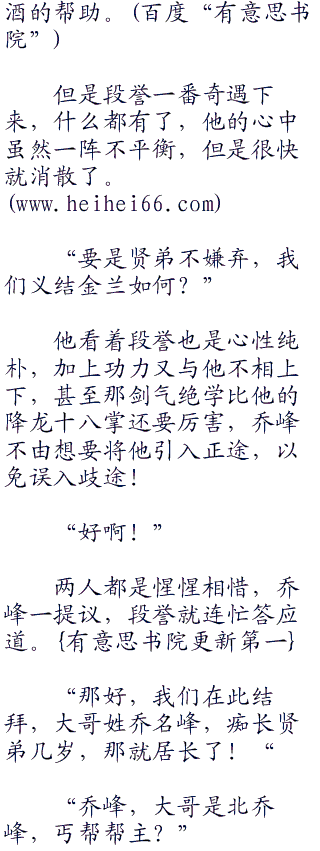 酒的帮助。(百度“有意思书
院”)
但是段誉一番奇遇下
来，什么都有了，他的心中
虽然一阵不平衡，但是很快
就消散了。
(www.heihei66.com)
“要是贤弟不嫌弃，我
们义结金兰如何？”
他看着段誉也是心性纯
朴，加上功力又与他不相上
下，甚至那剑气绝学比他的
降龙十八掌还要厉害，乔峰
不由想要将他引入正途，以
免误入歧途！
“好啊！”
两人都是惺惺相惜，乔
峰一提议，段誉就连忙答应
道。{有意思书院更新第一}
“那好，我们在此结
拜，大哥姓乔名峰，痴长贤
弟几岁，那就居长了！“
“乔峰，大哥是北乔
峰，丐帮帮主？”